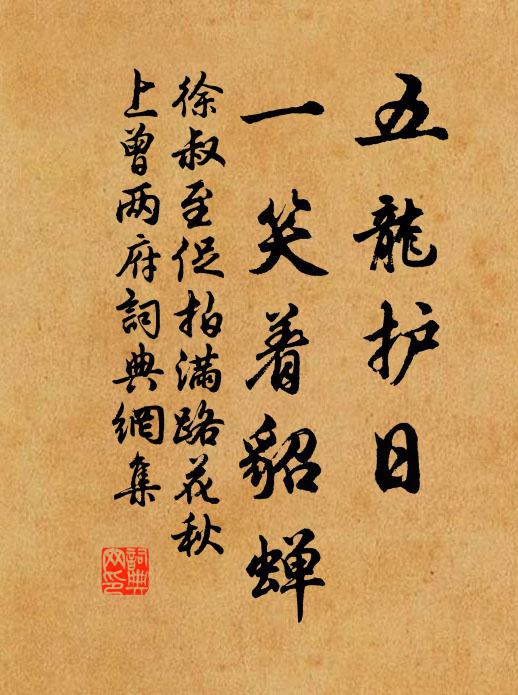 五龍护日
一笑着貂蝉
徐叔至促拍满路花秋
上曾两府詞典網集
詞典网印